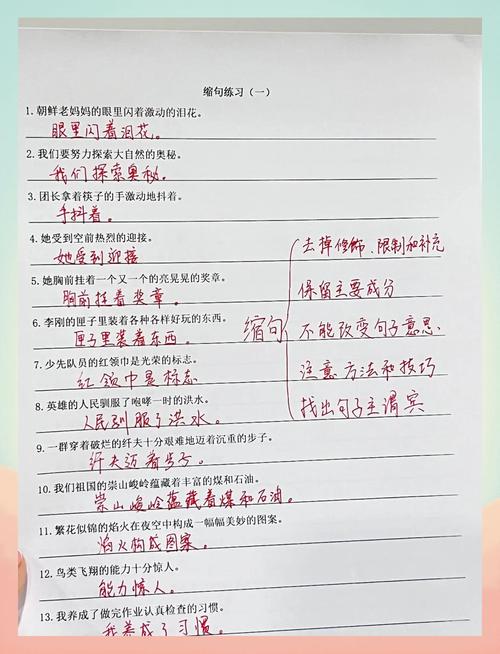 缩句练习（一）
1.朝鲜老妈妈的眼里闪着激动的泪花。
眼里闪着泪花。
2.我们要努力探索大自然的奥秘。
我们探索奥秘。
3.团长拿着筷子的手激动地抖着。
手抖着。
4.她受到空前热烈的迎接。
她受到迎接
5.她胸前挂着一个又一个的亮晃晃的奖章。
胸前挂着奖章。
6.李刚的匣子里装着各种各样好玩的东西。
匣子里装着东西。
7.少先队员的红领巾是光荣的标志。
红领巾是标志
8.英雄的人民驯服了咆哮一时的洪水。
人民驯服了洪水。
9.一群穿着破烂的纤夫十分艰难地迈着沉重的步子。
纤夫迈着步子。
10.我们祖国的崇山峻岭蕴藏着丰富的煤和石油。
崇山峻岭蕴藏着煤和石油。
11.繁花似锦的焰火在夜空中构成一幅幅美妙的图案。
焰火构成图案。
12.鸟类飞翔的能力十分惊人。
能力惊人。
13.我养成了做完作业认真检查的习惯。
我养成了习惯。
缩句
去掉修饰、限制和补充
保留主要成分
不能改变句子意思
注意方法和技巧
找出句子主谓宾